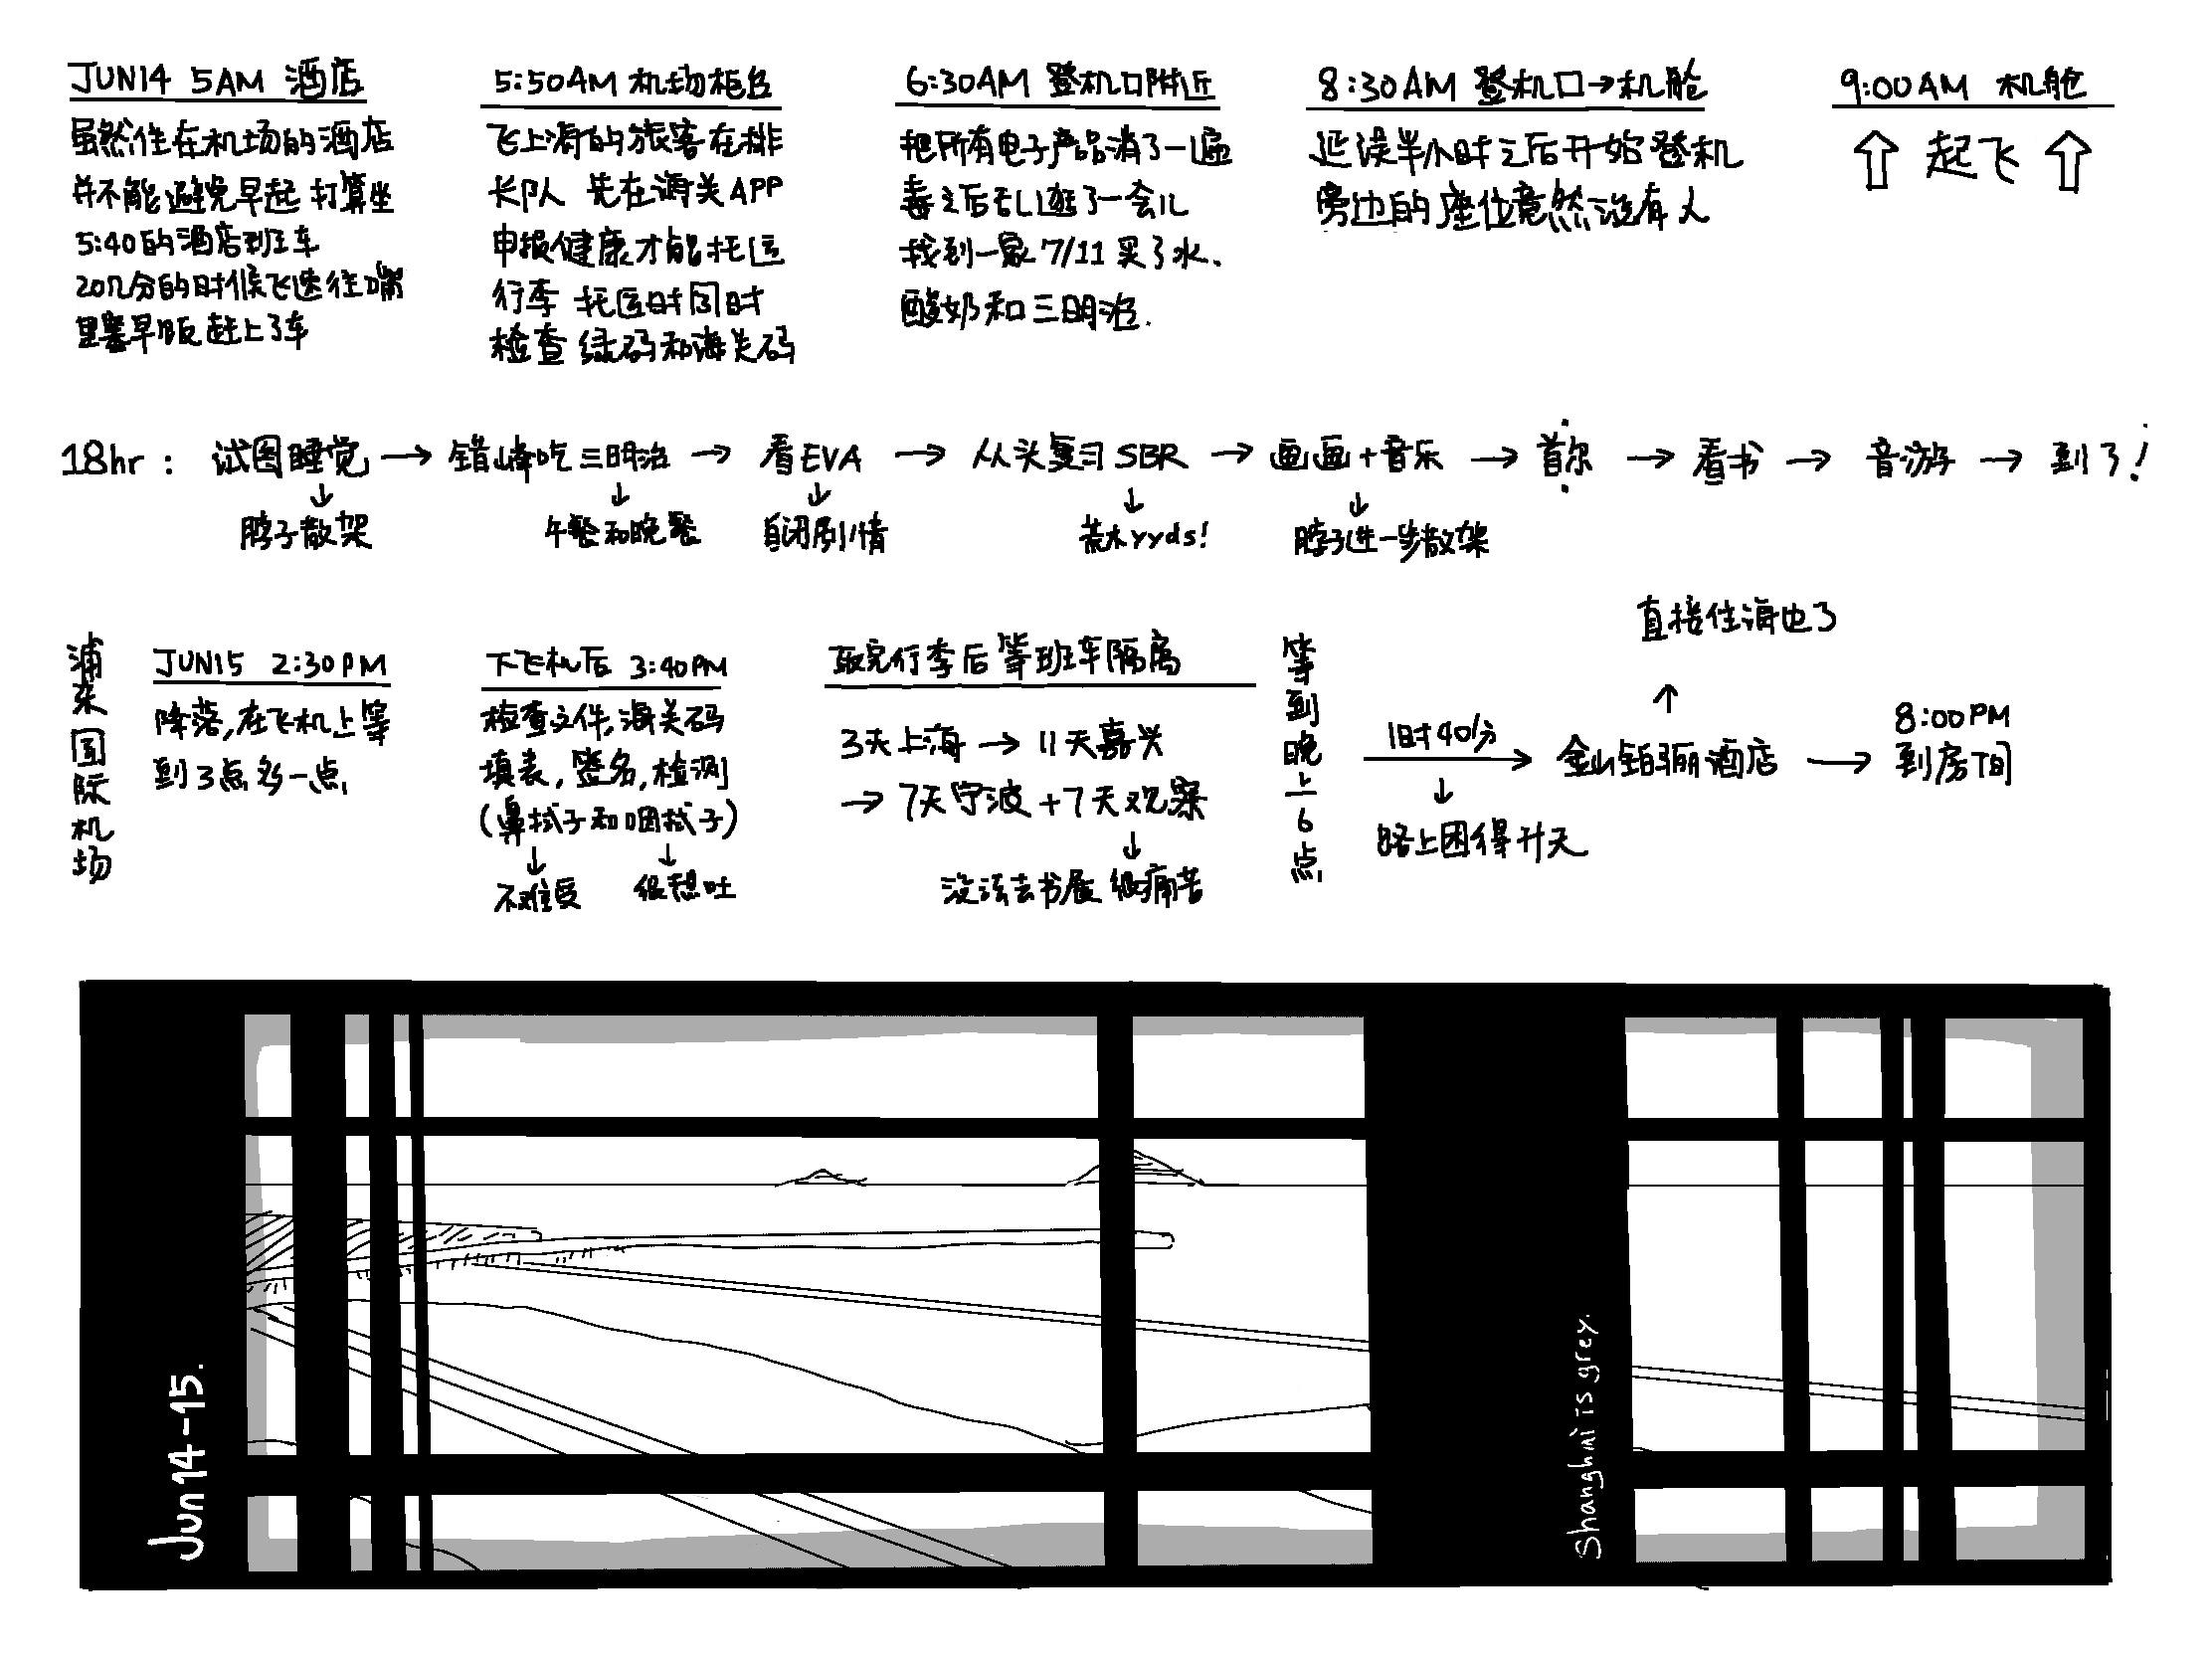 JUN14 5AM 酒店
虽然住在机场的酒店
并不能避免早起 打算坐
5:40的酒店班车
20几分的时候飞速往嘴
里塞早饭 赶上了车
5:50AM 机场柜台
飞上海的旅客在排
长队 先在海关APP
申报健康才能托运
行李 托运时同时
检查 绿码和海关码
6:30AM 登机口附近
把所有电子产品消了一遍
毒之后乱逛了一会儿
找到一家 7/11 买了水、
酸奶和三明治.
8:30AM 登机口→机舱
延误半小时之后开始登机
旁边的座位竟然没有人
9:00AM 机舱
⇧ 起飞 ⇧
18hr : 试图睡觉 → 错峰吃三明治 → 看EVA → 从头复习 SBR → 画画+音乐 → 首尔 → 看书 → 音游 → 到了!
↓ ↓ ↓ ↓ ↓
脖子散架 午餐和晚餐 自闭剧情 荒木yyds! 脖子进一步散架
浦东国际机场
JUN15 2:30PM
降落,在飞机上等
到3点多一点
下飞机后 3:40PM
检查文件,海关码
填表,签名,检测
(鼻拭子和咽拭子)
↓ ↓
不难受 很想吐
取完行李后等班车隔离
3天上海 → 11天嘉兴
→ 7天宁波 +7天观察
↓
没法去书展 很痛苦
等到晚上6点
直接住海边了
↑
1时40分 → 金山铂骊酒店 →
↓
路上困得升天
8:00PM
到房间
Jun 14-15.
Shanghai is grey.